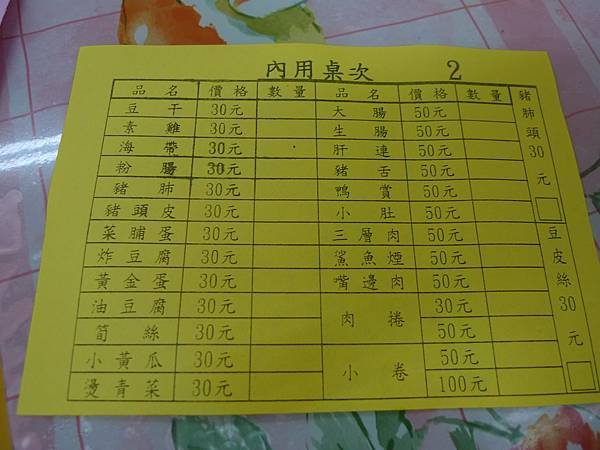 內用桌次 2
品名 價格 數量 品名 價格 數量
豆干 30元 大腸 50元
素雞 30元 生腸 50元
海帶 30元 肝連 50元
粉腸 30元 豬舌 50元
豬肺 30元 鴨賞 50元
豬頭皮 30元 小肚 50元
菜脯蛋 30元 三層肉 50元
炸豆腐 30元 鯊魚煙 50元
黃金蛋 30元 嘴邊肉 50元
油豆腐 30元 肉捲 30元
筍絲 30元 50元
小黃瓜 30元 小卷 50元
燙青菜 30元 100元
豬肺頭30元
豆皮絲30元